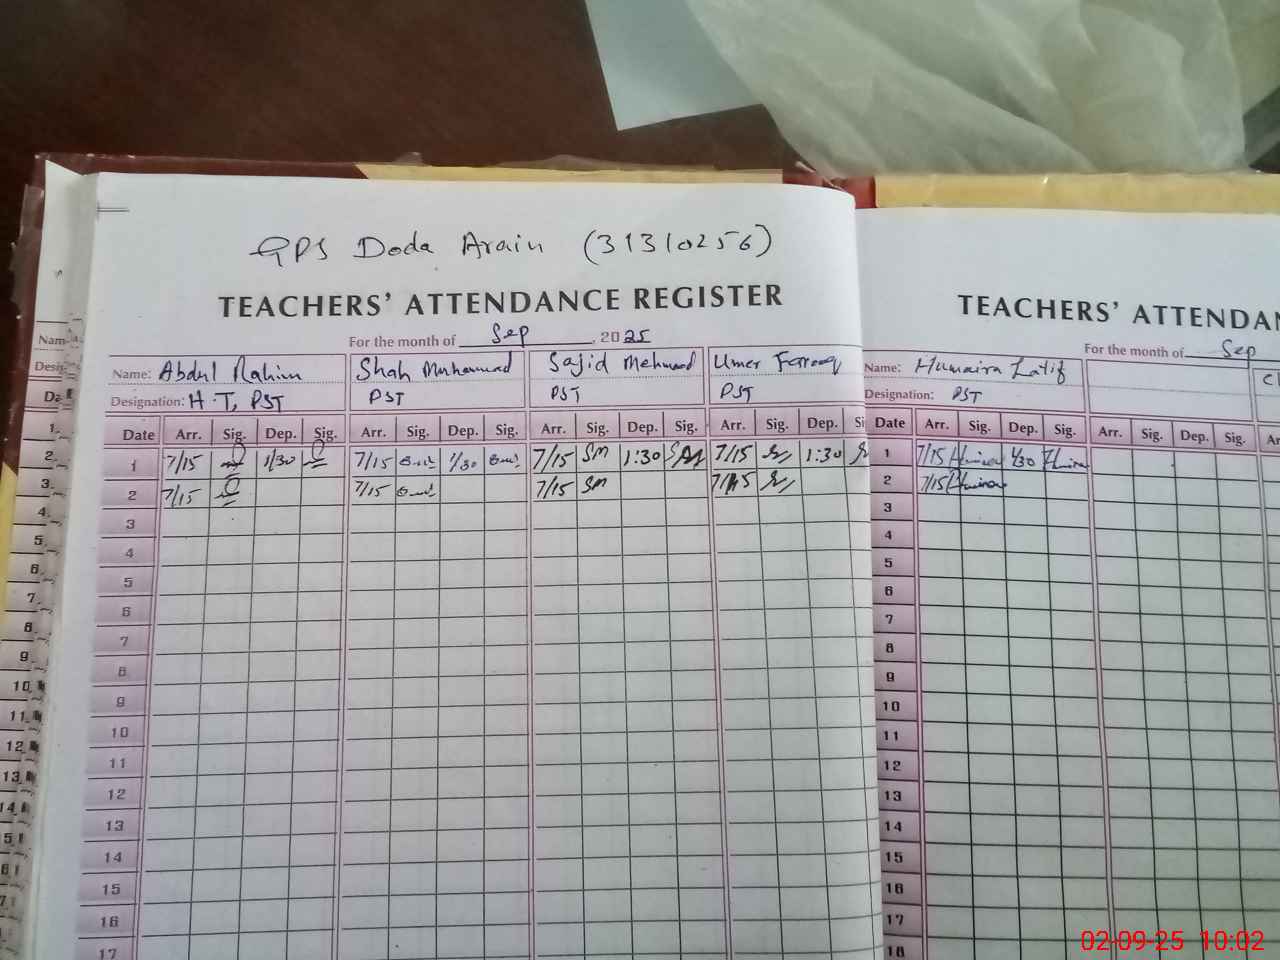 GPS Doda Arain (31310256)
TEACHERS' ATTENDANCE REGISTER
For the month of Sep, 2025
Name: Abdul Rahim Shah Muhammad Sajid Mehmood Umer Farooq
Designation: H.T, PST PST PST PST
Date Arr. Sig. Dep. Sig. Arr. Sig. Dep. Sig. Arr. Sig. Dep. Sig. Arr. Sig. Dep. Si
1 7/15 1/30 7/15 1/30 7/15 SM 1:30 7/15 1:30
2 7/15 7/15 7/15 SM 7/15
3
4
5
6
7
8
9
10
11
12
13
14
15
16
17
TEACHERS' ATTENDAN
For the month of Sep
Name: Humaira Latif
Designation: PST
Date Arr. Sig. Dep. Sig. Arr. Sig. Dep. Sig. Ar
1 7/15 Humaira 1/30 Humaira
2 7/15 Humaira
3
4
5
6
7
8
9
10
11
12
13
14
15
16
17
18
Nam
Desig
Da
1.
2.
3.
4.
5.
6.
7.
8.
9.
10
11
12
13
14
02-09-25 10:02